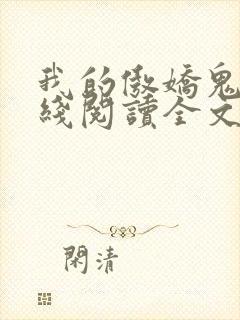 我的傲嬌鬼
綫閱讀全文
閑清